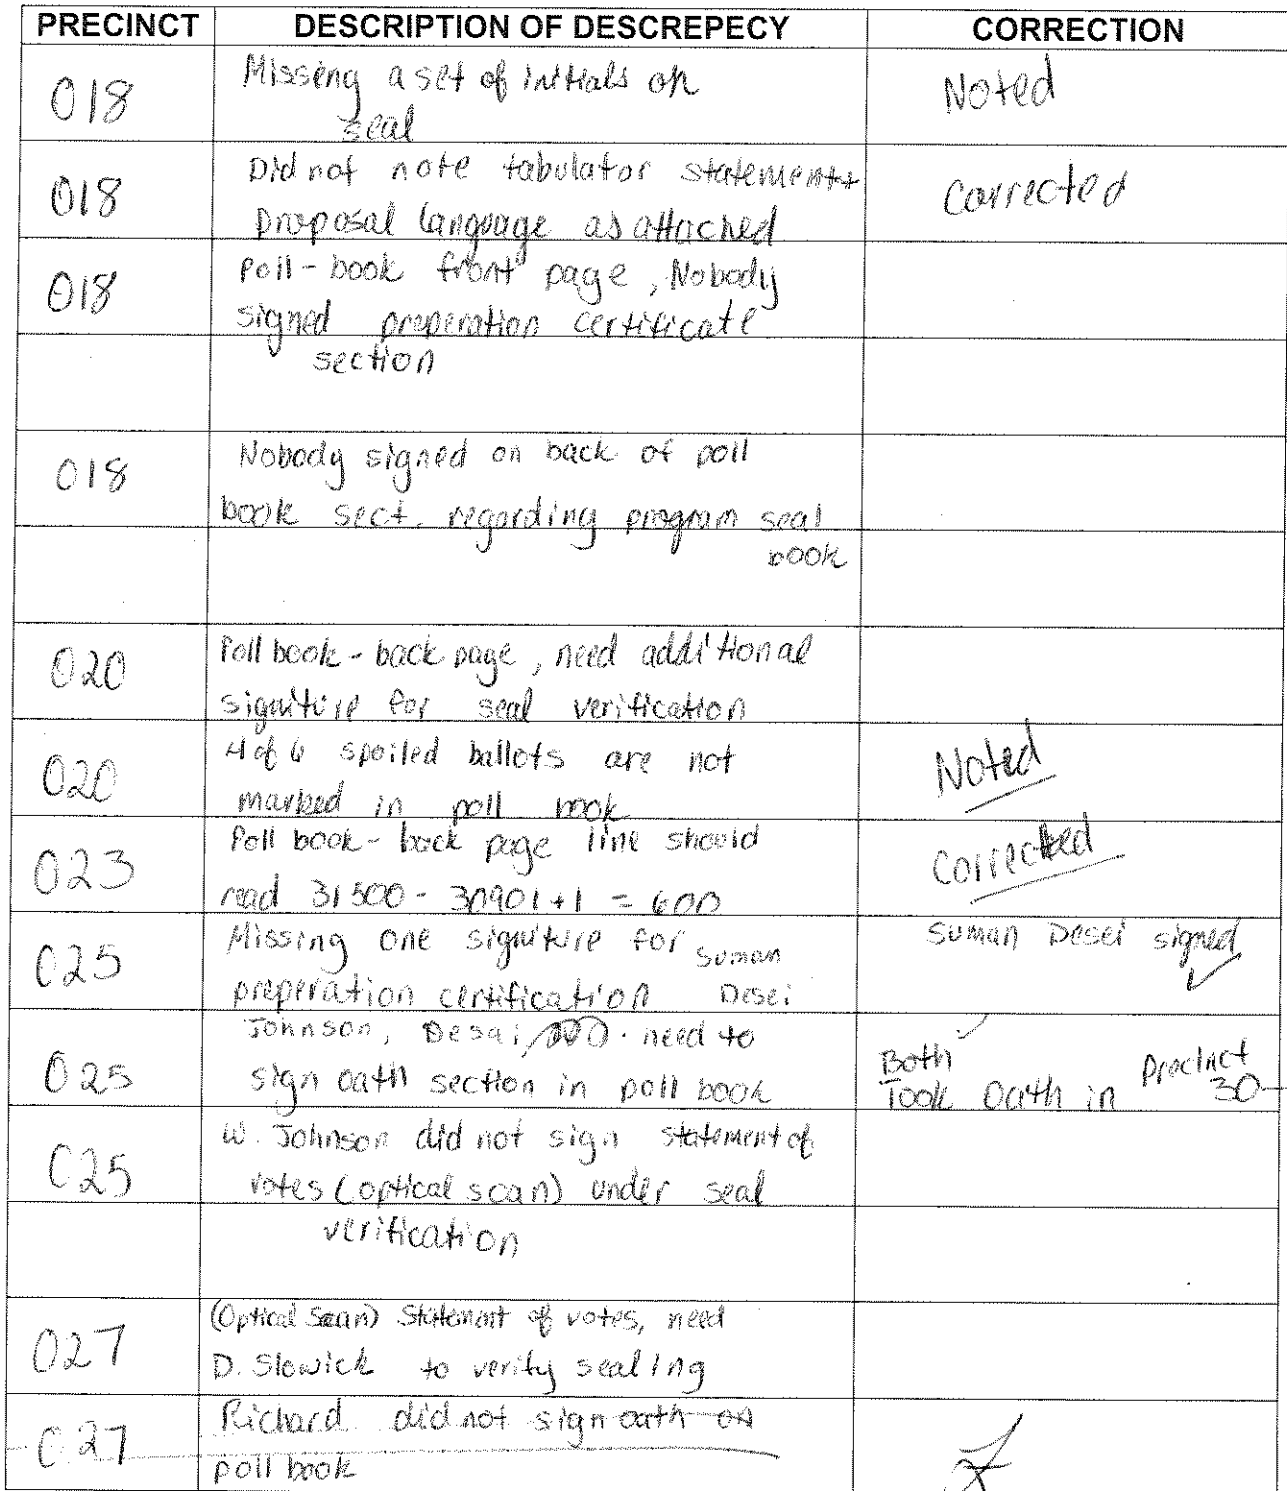 PRECINCT DESCRIPTION OF DESCREPECY CORRECTION
018 Missing a set of initials on Noted
seal
018 Did not note tabulator statement + Corrected
proposal language as attached
018 Poll-book front page, Nobody
signed preperation certificate
section
018 Nobody signed on back of poll
book sect. regarding program seal
book
020 Poll book - back page, need additional
signiture for seal verification
020 4 of 6 spoiled ballots are not Noted
marked in poll book
023 Poll book - back page line should Corrected
read 31500 - 30901 + 1 = 600
025 Missing one signiture for Suman Suman Desei signed
preperation certification Desei
025 Johnson, Desai need to Both
sign oath section in poll book Took Oath in Precinct 30
025 W. Johnson did not sign statement of
votes (optical scan) under seal
verification
027 (Optical Scan) Statement of votes, need
D. Slowick to verify sealing
027 Richard did not sign oath on
poll book